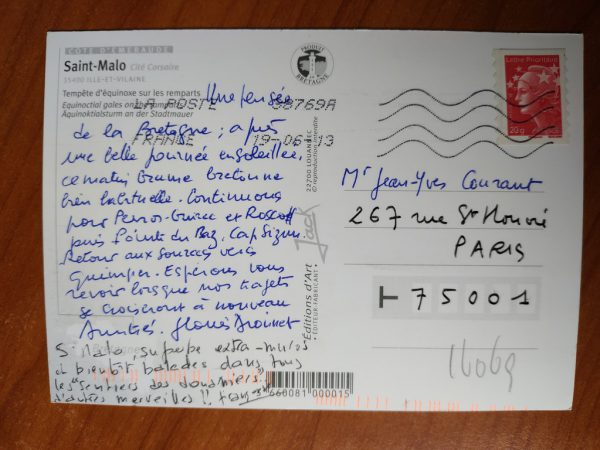 CÔTE D'ÉMERAUDE
Saint-Malo Cité Corsaire
35400 ILLE-ET-VILAINE
Tempête d'équinoxe sur les remparts
Equinoctial gales on the ramparts
Äquinoktialsturm an der Stadtmauer
PRODUIT EN BRETAGNE
Lettre Prioritaire
20g
LA POSTE 38769A
FRANCE 19-06-13
Une pensée
de la Bretagne ; après
une belle journée ensoleillée,
ce matin brume bretonne
bien habituelle. Continuons
pour Perros-Guirec et Roscoff
puis Pointe du Raz, Cap Sizun.
Retour aux sources vers
Quimper. Espérons vous
revoir lorsque nos trajets
se croiseront à nouveau
Amitiés.
St Malo, superbe extra-muros
et bientôt balades dans tous
les "sentiers des douaniers"
d'autres merveilles !!
22700 LOUANNEC
© reproduction interdite
Jack
Éditions d'Art
ÉDITEUR-FABRICANT
Mr Jean-Yves Courant
267 rue St Honoré
PARIS
75001
660081 000015